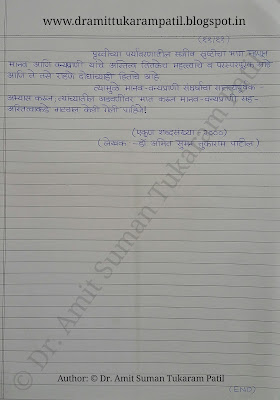 www.dramittukarampatil.blogspot.in
(११/११)
पृथ्वीच्या पर्यावरणातील सजीव सृष्टीचा भाग म्हणून
मानव आणि वन्यप्राणी यांचे अस्तित्व तितकेच महत्वाचे व परस्परपूरक आहे
आणि ते तसे राहणे दोघांच्याही हिताचे आहे
त्यामुळे मानव-वन्यप्राणी संघर्षाचा
अभ्यास करून, त्याच्यातील अडचणींवर मात करून मानव-वन्यप्राणी सह-
अस्तित्वाकडे वाटचाल केली गेली पाहिजे!
(एकूण शब्दसंख्या -
(लेखक :- डॉ अमित सुमन तुकाराम पाटील)
© Dr. Amit Suman Tukaram Patil
(END)
Author: © Dr. Amit Suman Tukaram Patil